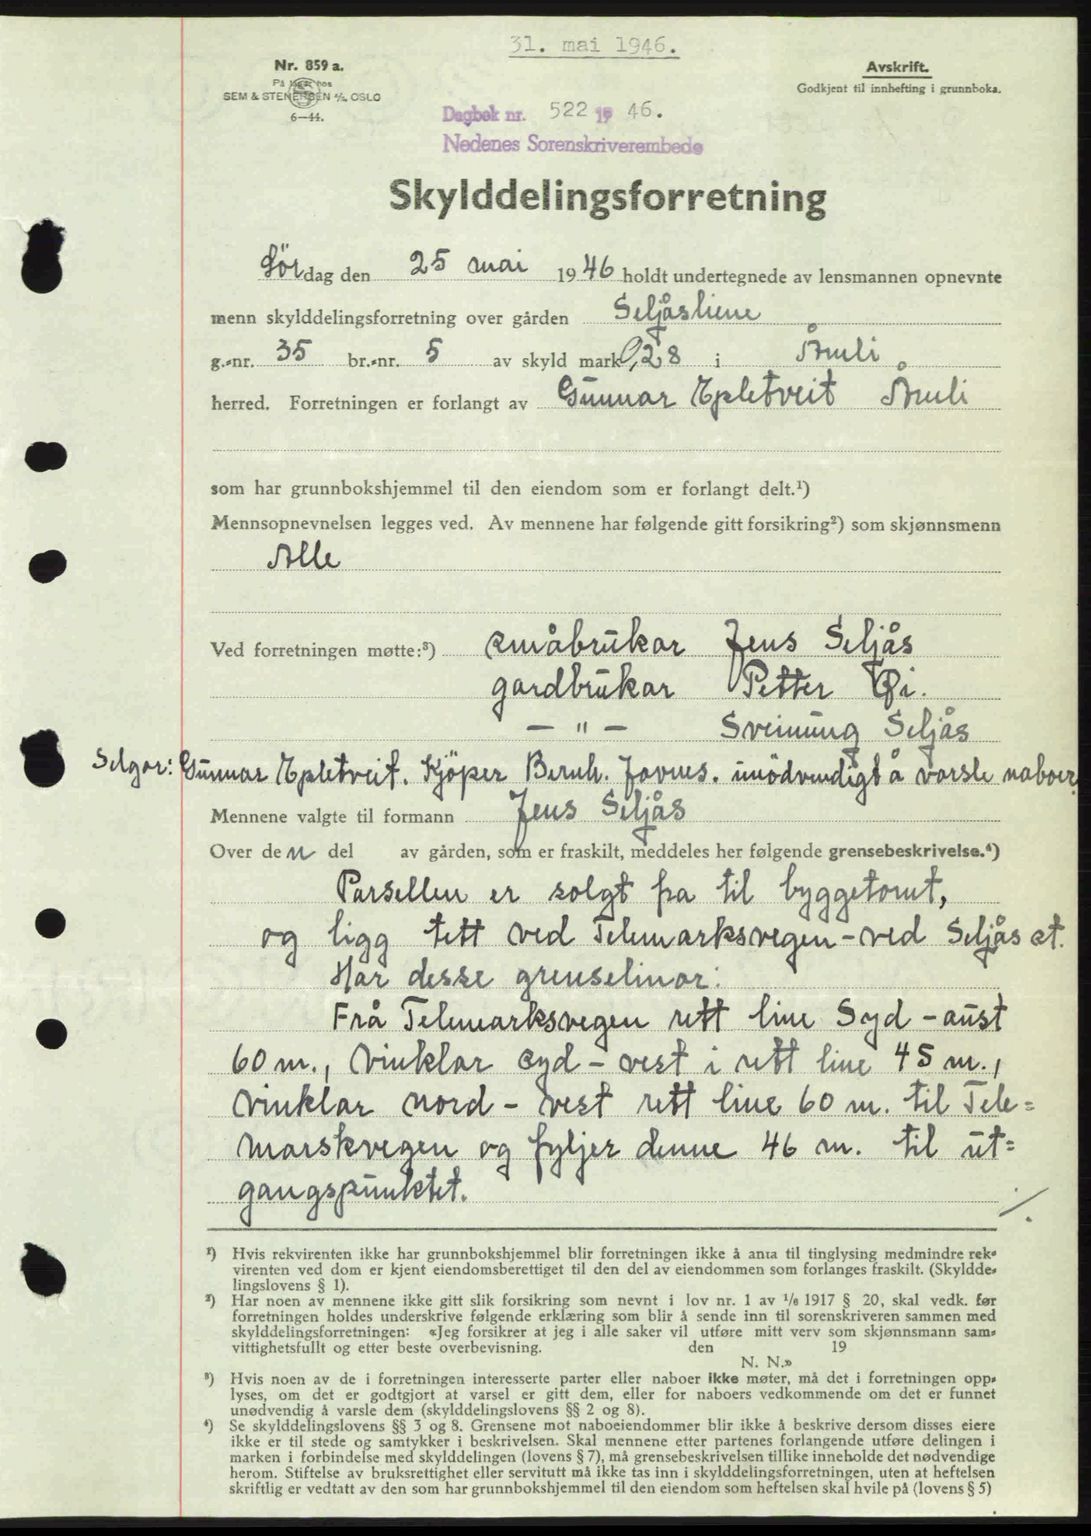 31. mai 1946.
Nr. 859 a.
På lager hos
SEM & STENERSEN A/S, OSLO
6—44.
Avskrift.
Godkjent til innhefting i grunnboka.
Dagbok nr. 522 19 46.
Nedenes Sorenskriverembede
Skylddelingsforretning
Lördag den 25 mai 1946 holdt undertegnede av lensmannen opnevnte
menn skylddelingsforretning over gården Seljåsliene
g.-nr. 35 br.-nr. 5 av skyld mark 0,28 i Åmli
herred. Forretningen er forlangt av Gunnar Epletveit Åmli
som har grunnbokshjemmel til den eiendom som er forlangt delt.¹)
Mennsopnevnelsen legges ved. Av mennene har følgende gitt forsikring²) som skjønnsmenn
Alle
Ved forretningen møtte:³) småbrukar Jens Seljås
gardbrukar Petter Øi.
— " — Sveinung Seljås
Selgar: Gunnar Epletveit. Kjöper Bernh. Jovnes. unödvendigt å varsle naboer.
Mennene valgte til formann Jens Seljås
Over den del av gården, som er fraskilt, meddeles her følgende grensebeskrivelse.⁴)
Parsellen er solgt fra til byggetomt,
og ligg tett ved Telemarksvegen - ved Seljås st.
Har desse grenselinor:
Frå Telemarksvegen rett line Syd - aust
60 m., vinklar syd - vest i rett line 45 m.,
vinklar nord - vest rett line 60 m. til Tele=
marskvegen og fyljer denne 46 m. til ut=
gangspunktet.
./.
¹) Hvis rekvirenten ikke har grunnbokshjemmel blir forretningen ikke å anta til tinglysing medmindre rek-
virenten ved dom er kjent eiendomsberettiget til den del av eiendommen som forlanges fraskilt. (Skyldde-
lingslovens § 1).
²) Har noen av mennene ikke gitt slik forsikring som nevnt i lov nr. 1 av ¹/₆ 1917 § 20, skal vedk. før
forretningen holdes underskrive følgende erklæring som blir å sende inn til sorenskriveren sammen med
skylddelingsforretningen: «Jeg forsikrer at jeg i alle saker vil utføre mitt verv som skjønnsmann sam-
vittighetsfullt og etter beste overbevisning. den 19
N. N.»
³) Hvis noen av de i forretningen interesserte parter eller naboer ikke møter, må det i forretningen opp-
lyses, om det er godtgjort at varsel er gitt dem, eller for naboers vedkommende om det er funnet
unødvendig å varsle dem (skylddelingslovens §§ 2 og 8).
⁴) Se skylddelingslovens §§ 3 og 8. Grensene mot naboeiendommer blir ikke å beskrive dersom disses eiere
ikke er til stede og samtykker i beskrivelsen. Skal mennene etter partenes forlangende utføre delingen i
marken i forbindelse med skylddelingen (lovens § 7), må grensebeskrivelsen tillike inneholde det nødvendige
herom. Stiftelse av bruksrettighet eller servitutt må ikke tas inn i skylddelingsforretningen, uten at heftelsen
skriftlig er vedtatt av den som har grunnbokshjemmel til den eiendom som heftelsen skal hvile på (lovens § 5)